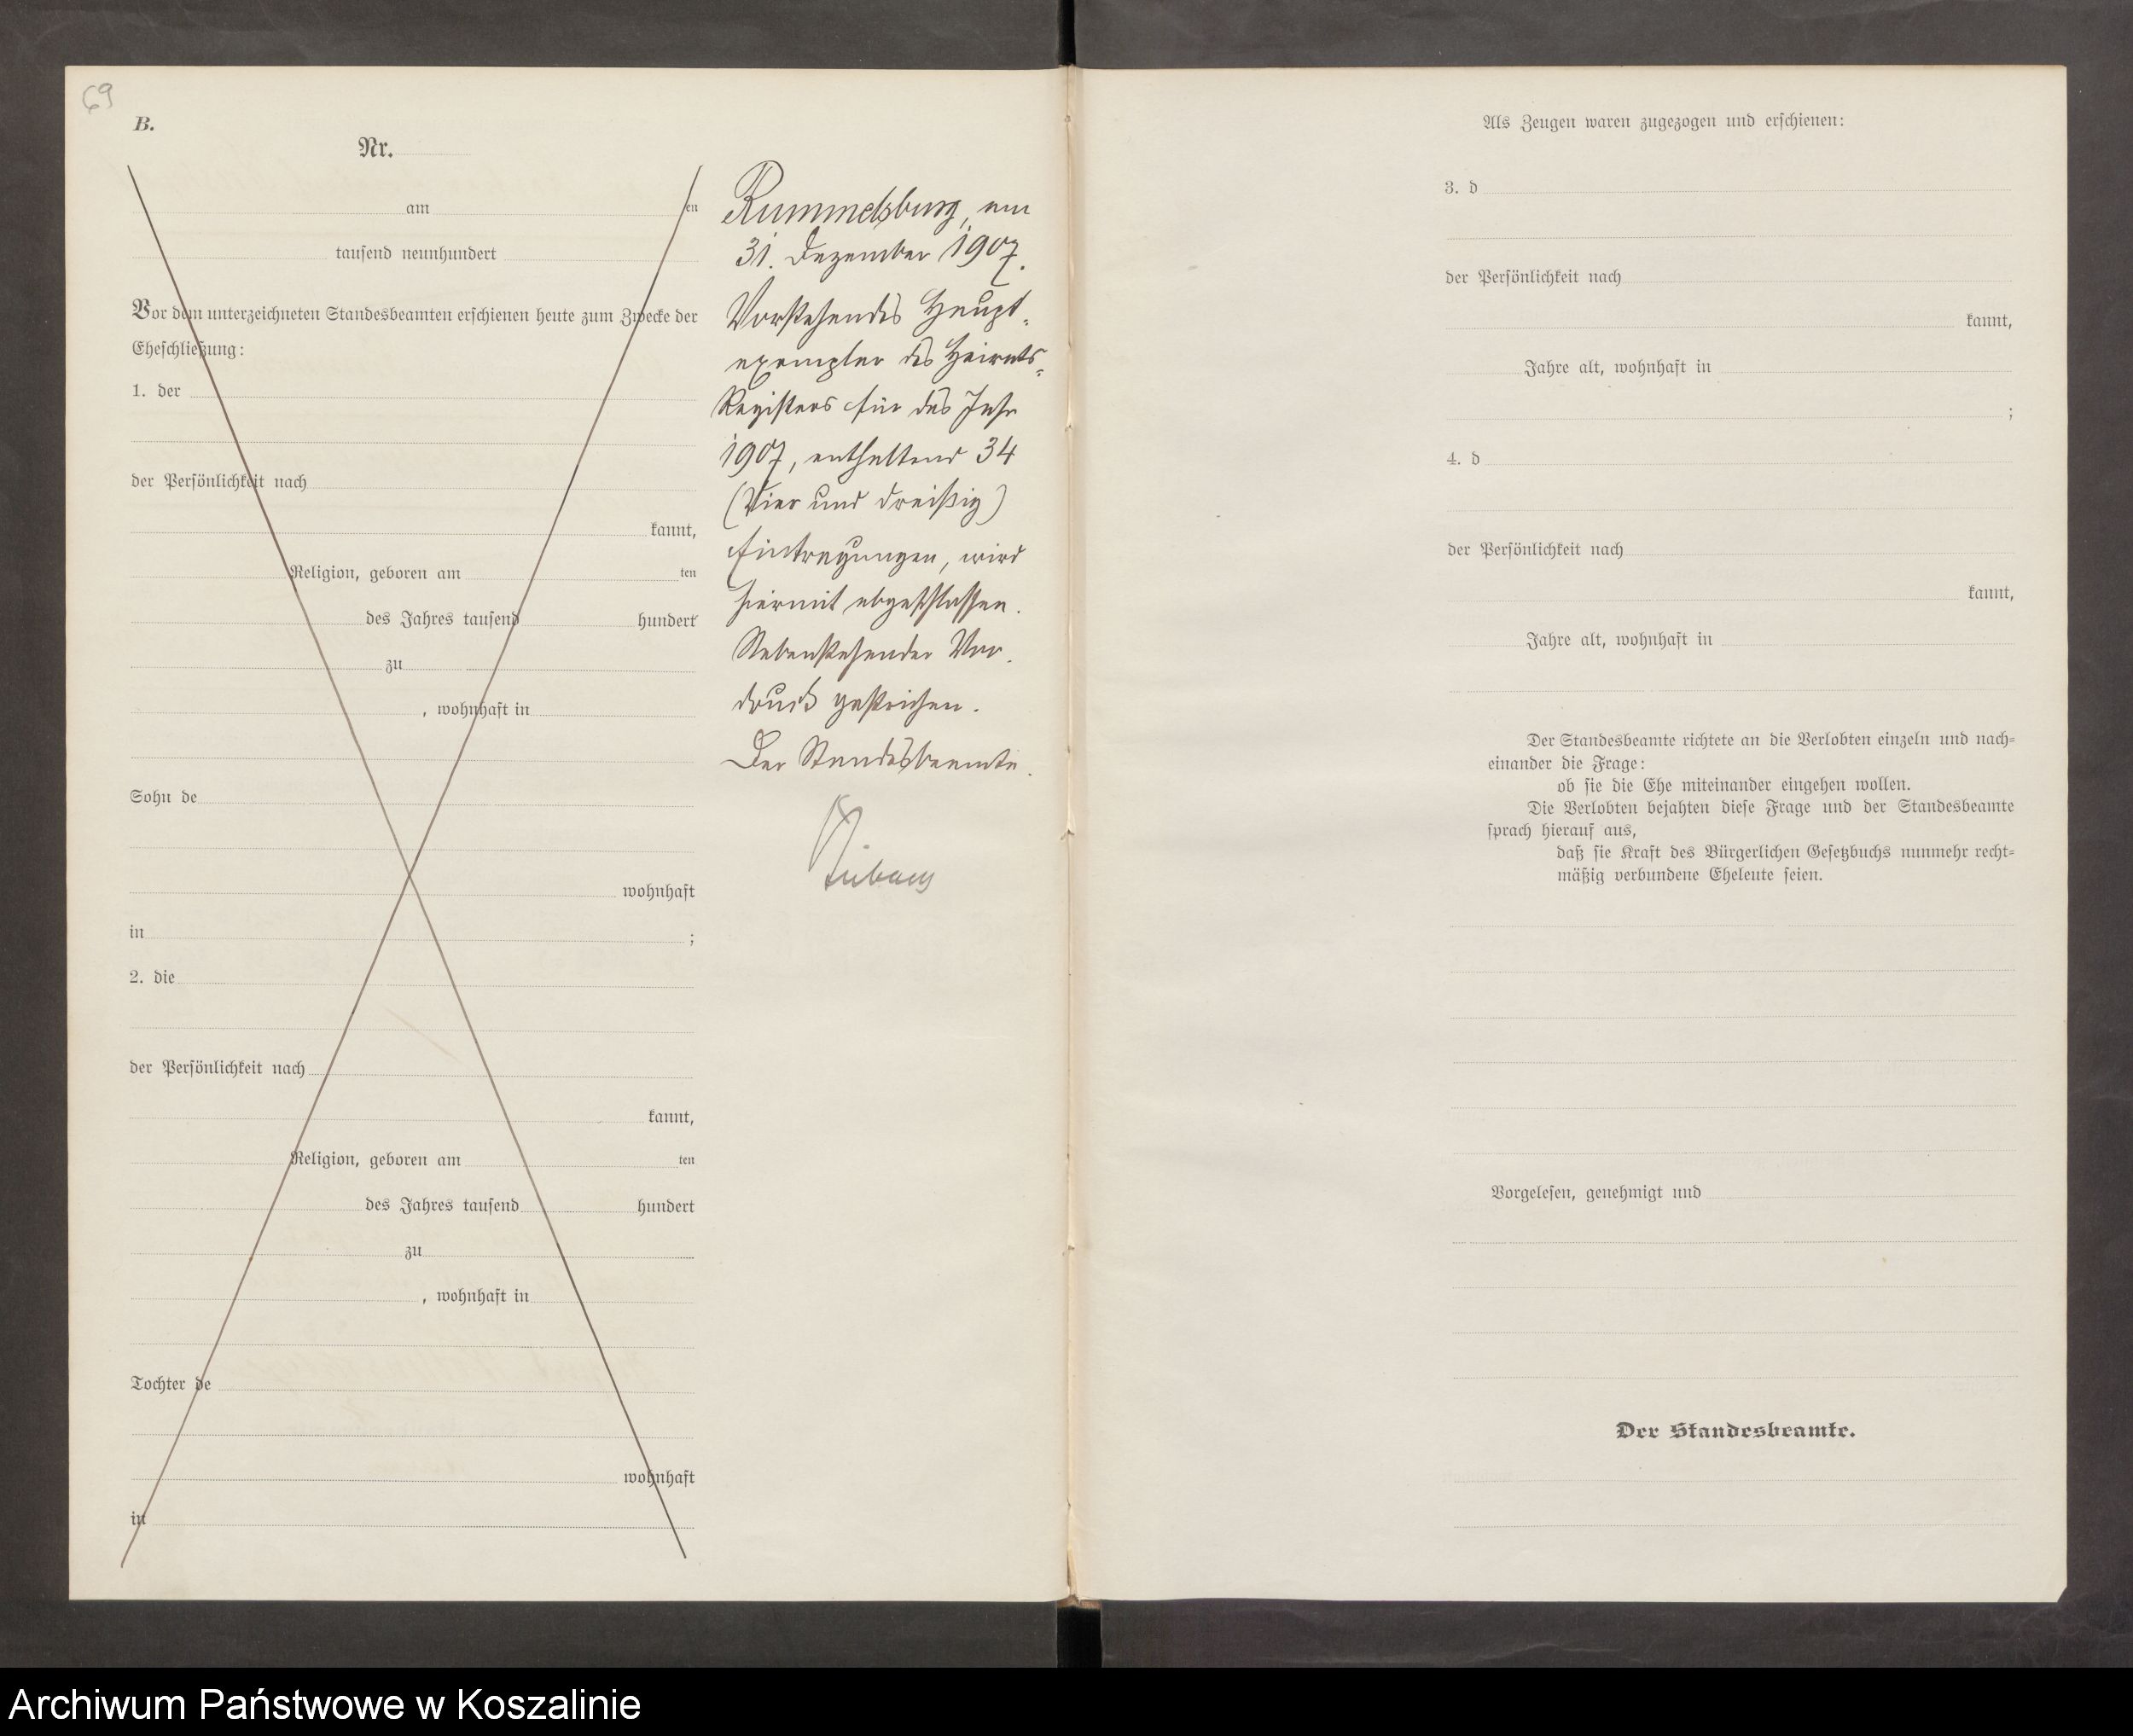 69
B.
Nr.
am en
tausend neunhundert
Vor dem unterzeichneten Standesbeamten erschienen heute zum Zwecke der
Eheschließung:
1. der
der Persönlichkeit nach
kannt,
Religion, geboren am ten
des Jahres tausend hundert
zu
, wohnhaft in
Sohn de
wohnhaft
in ;
2. die
der Persönlichkeit nach
kannt,
Religion, geboren am ten
des Jahres tausend hundert
zu
, wohnhaft in
Tochter de
wohnhaft
in
Rummelsburg, am
31. Dezember 1907.
Vorstehendes Haupt-
exemplar des Heirats-
Registers für das Jahr
1907, enthaltend 34
(Vier und dreißig)
Eintragungen, wird
hiermit abgeschlossen.
Nebenstehender Vor-
druck gestrichen.
Der Standesbeamte.
Als Zeugen waren zugezogen und erschienen:
3. d
der Persönlichkeit nach
kannt,
Jahre alt, wohnhaft in
;
4. d
der Persönlichkeit nach
kannt,
Jahre alt, wohnhaft in
Der Standesbeamte richtete an die Verlobten einzeln und nach-
einander die Frage:
ob sie die Ehe miteinander eingehen wollen.
Die Verlobten bejahten diese Frage und der Standesbeamte
sprach hierauf aus,
daß sie Kraft des Bürgerlichen Gesetzbuchs nunmehr recht-
mäßig verbundene Eheleute seien.
Vorgelesen, genehmigt und
Der Standesbeamte.
Archiwum Państwowe w Koszalinie